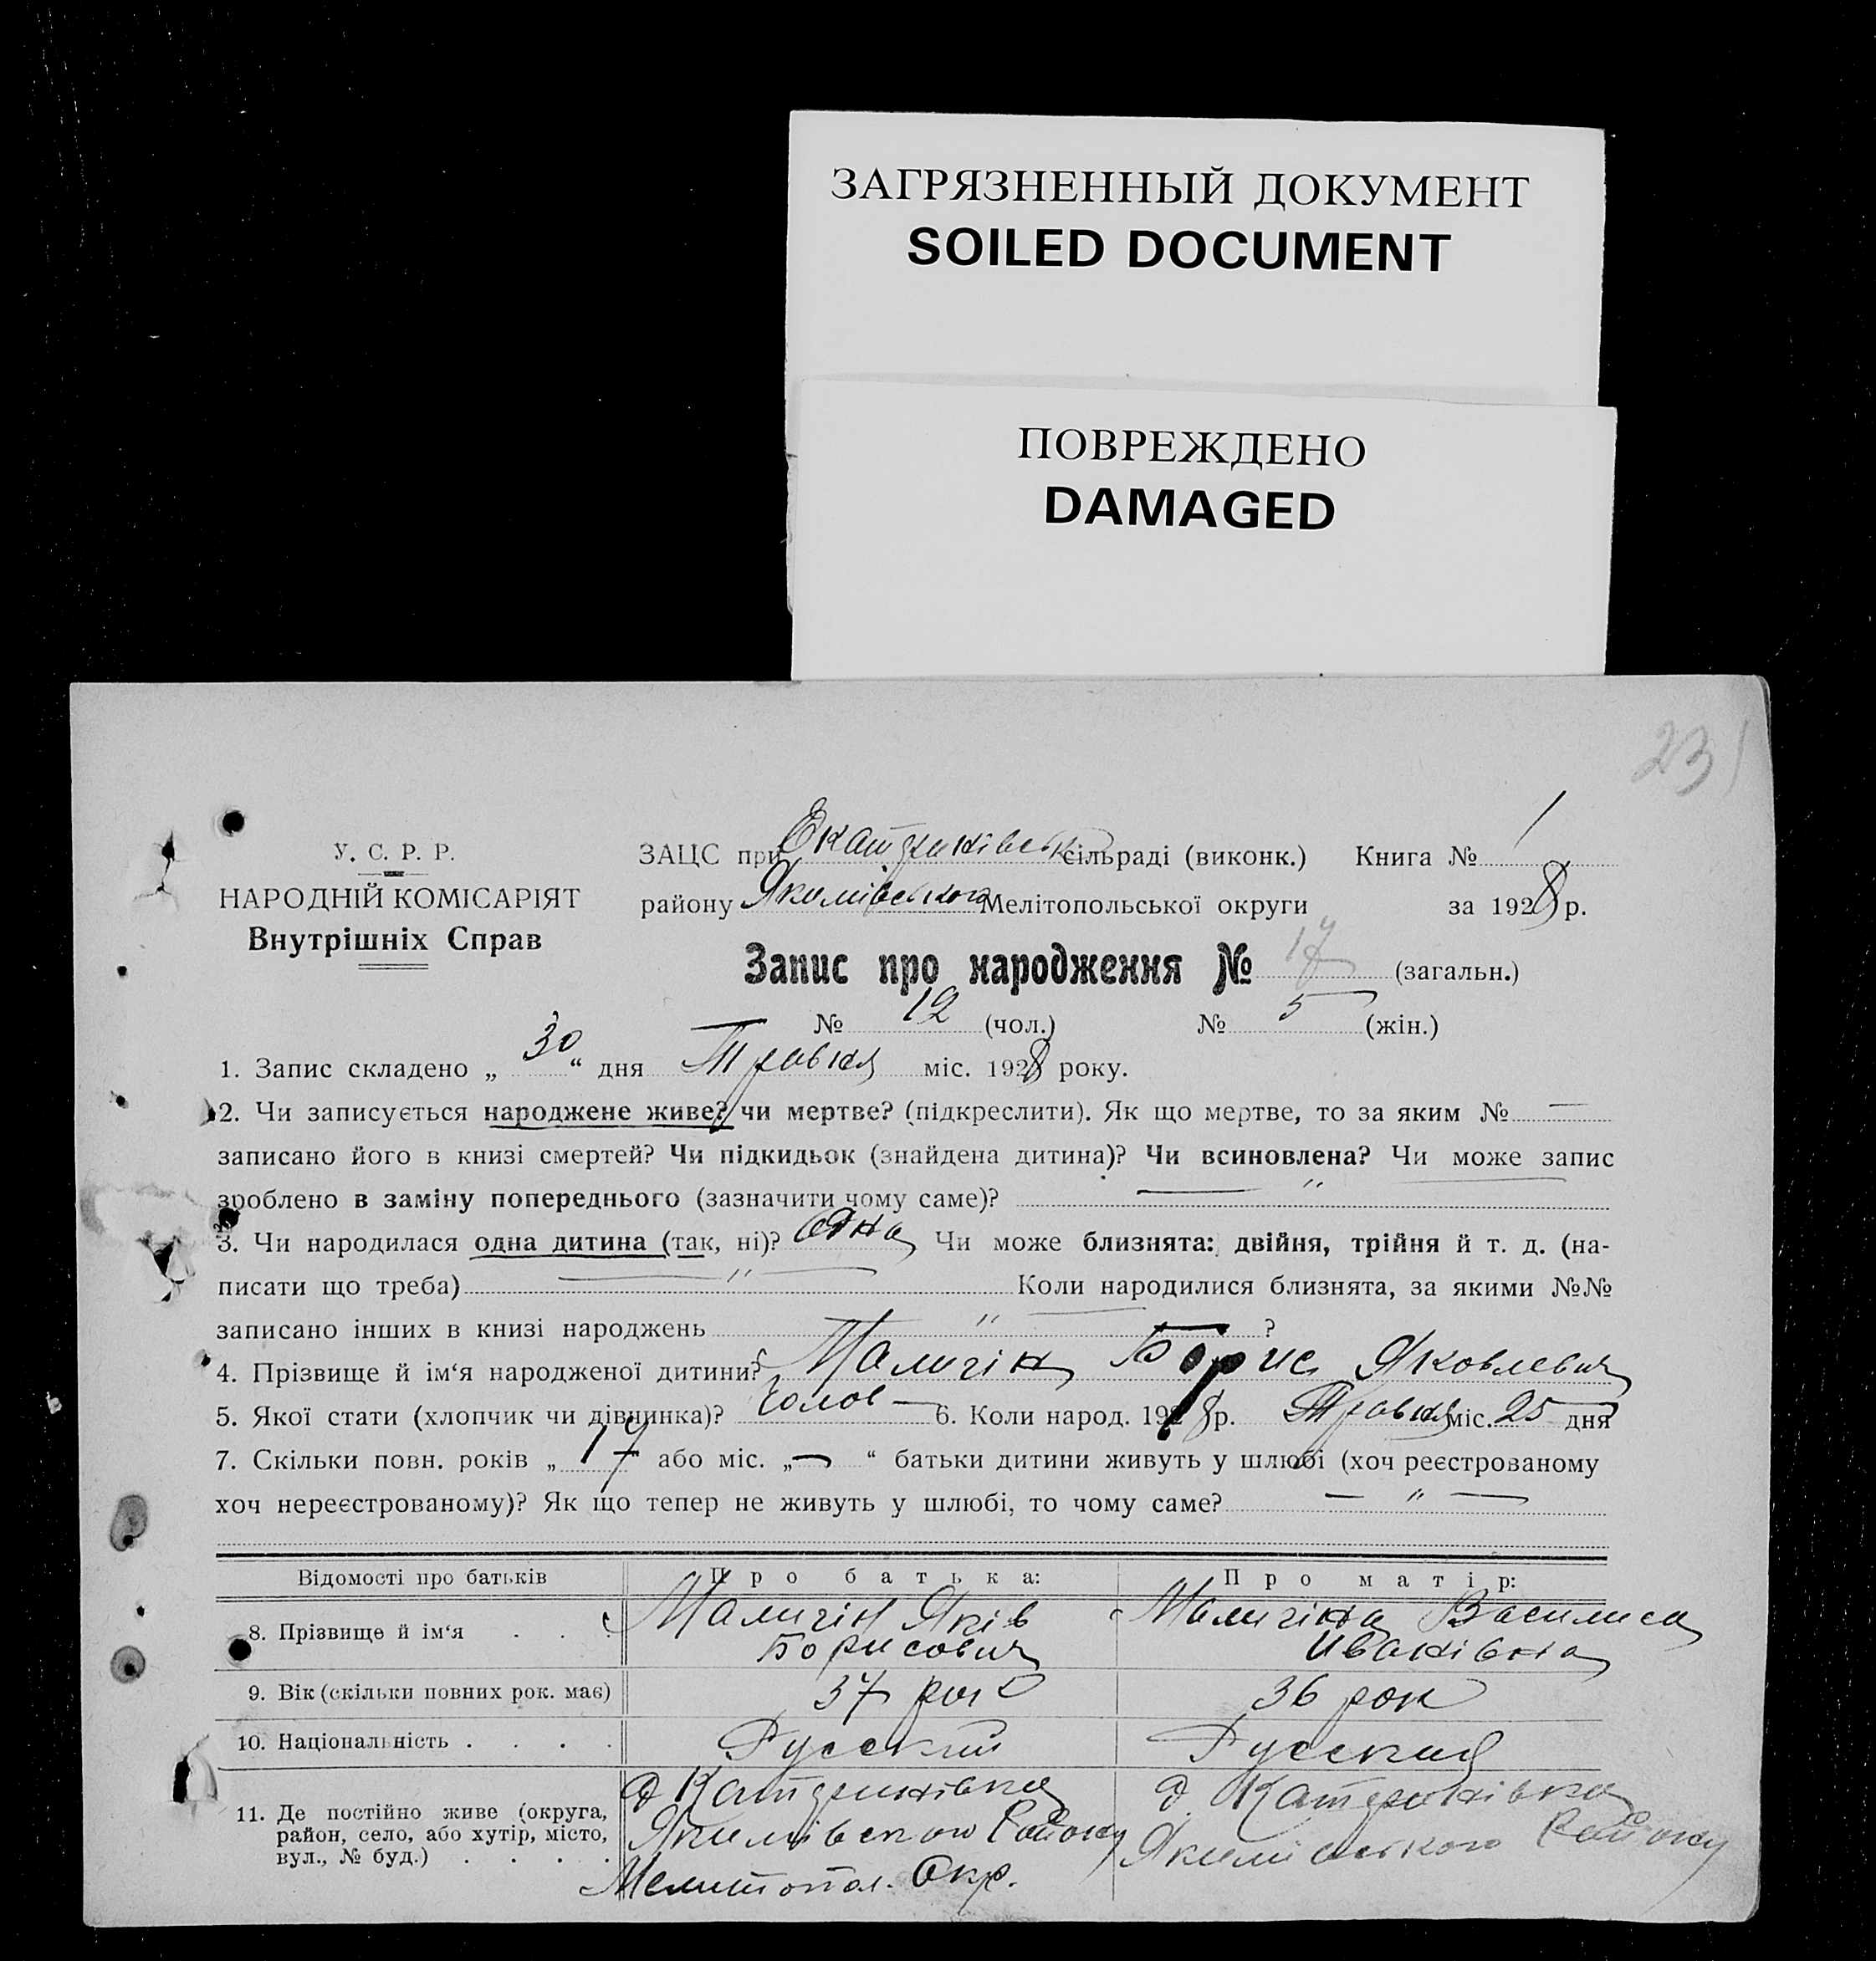 ЗАГРЯЗНЕННЫЙ ДОКУМЕНТ
SOILED DOCUMENT
ПОВРЕЖДЕНО
DAMAGED
231
У. С. Р. Р.
НАРОДНІЙ КОМІСАРІЯТ
Внутрішніх Справ
ЗАЦС при Екатеринівськ сільраді (виконк.) Книга № 1
району Якимівського Мелітопольської округи за 1928 р.
Запис про народження № 17 (загальн.)
№ 12 (чол.) № 5 (жін.)
1. Запис складено „ 30 “ дня Травня міс. 1928 року.
2. Чи записується народжене живе? чи мертве? (підкреслити). Як що мертве, то за яким № —
записано його в книзі смертей? Чи підкидьок (знайдена дитина)? Чи всиновлена? Чи може запис
зроблено в заміну попереднього (зазначити чому саме)? — „ —
3. Чи народилася одна дитина (так, ні)? одна Чи може близнята: двійня, трійня й т. д. (на-
писати що треба) — „ — Коли народилися близнята, за якими №№
записано інших в книзі народжень „ — ?
4. Прізвище й ім‘я народженої дитини? Малигін Борис Яковлевич
5. Якої стати (хлопчик чи дівчинка)? Чолов — 6. Коли народ. 1928 р. Травня міс. 25 дня
7. Скільки повн. років „ 17 “ або міс. „ — “ батьки дитини живуть у шлюбі (хоч реєстрованому
хоч нереєстрованому)? Як що тепер не живуть у шлюбі, то чому саме? — „ —
Відомості про батьків Про батька: Про матір:
8. Прізвище й ім‘я . . . Малигін Яків Малигіна Василиса
Борисович Иванівна
9. Вік (скільки повних рок. має) 37 рок 36 рок
10. Національність . . . . Русский Русская
11. Де постійно живе (округа, район, село, або хутір, місто, вул., № буд.) . . . . д Катеринівка д. Катеринівка
Якимівского Району Якимівського Району
Мелитопол. Окр.